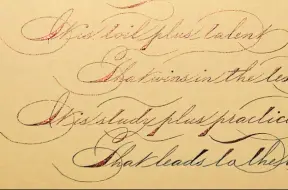 It is toil plus talent
That wins in the
It is study plus practice
That leads to the